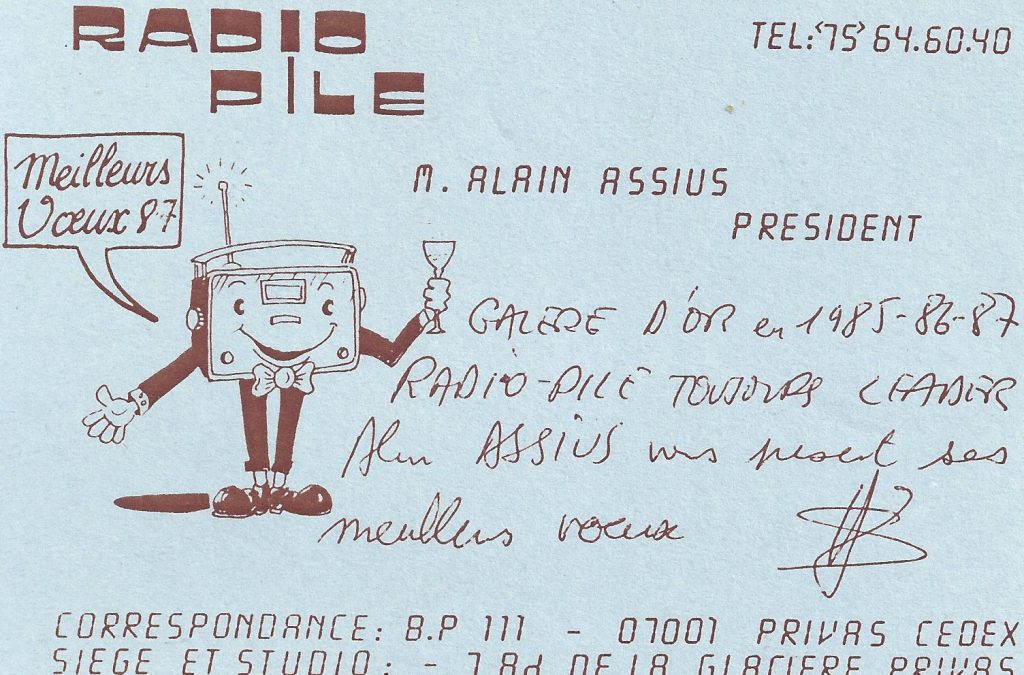 RADIO
PILE
TEL:‹75› 64.60.40
Meilleurs
Vœux 87
M. ALAIN ASSIUS
PRESIDENT
GALERE D'OR en 1985-86-87
RADIO-PILE TOUJOURS LEADER
Alain ASSIUS vous présente ses
meilleurs voeux
CORRESPONDANCE: B.P 111 - 07001 PRIVAS CEDEX
SIEGE ET STUDIO: - 7 Bd DE LA GLACIERE PRIVAS